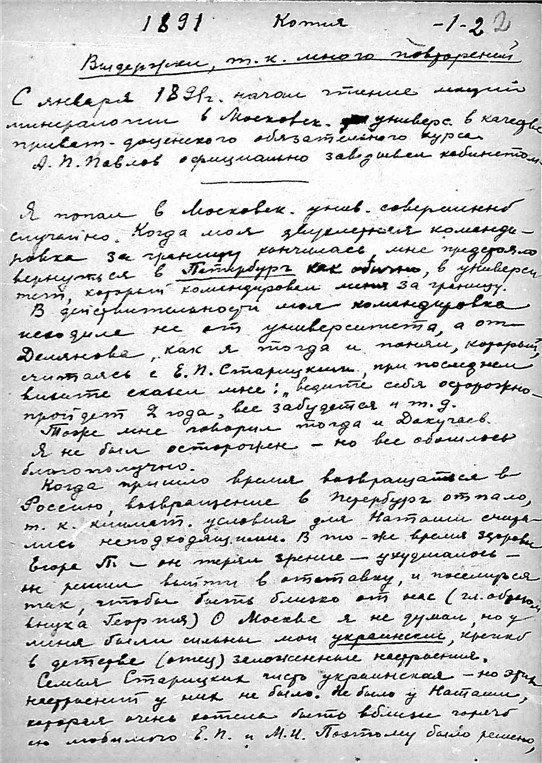 1891 Копия -1-22
Выдержки, т.к. много повторений
С января 1891г. начал чтение лекций
минералогии в Московск. универс. в качестве
приват-доцентского обязательного курса
А.П. Павлов официально заведывал кабинетом.
Я попал в Московск. унив. совершенно
случайно. Когда моя двухлетняя команди-
ровка за границу кончилась мне предстояло
вернуться в Петербург как обычно, в универси-
тет, который командировал меня за границу.
В действительности моя командировка
исходила не от университета, а от
Делянова, как я тогда и понял, который,
считаясь с Е.П. Старицким, при последнем
визите сказал мне: "ведите себя осторожно-
пройдет 2 года, все забудется и т.д.
Тоже мне говорил тогда и Докучаев.
Я не был осторожен - но все обошлось
благополучно.
Когда пришло время возвращаться в
Россию, возвращение в Петербург отпало,
т.к. климат. условия для Наташи счита-
лись неподходящими. В то-же время здоровье
- он терял зрение - ухудшалось -
он решил выйти в отставку, и поселиться
так, чтобы быть близко от нас (гл. образом
внука Георгия) О Москве я не думал, но у
меня были сильны мои украинские, крепко
в детстве (отец) заложенные настроения.
Семья Старицких чисто украинская - но этих
настроений у них не было. Не было у Наташи,
которая очень хотела быть вблизи горячо
ею любимого Е.П. и М.И. Поэтому было решено,